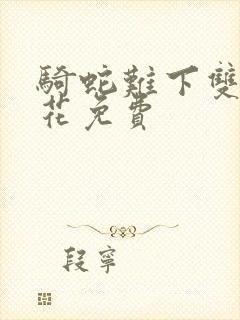 騎蛇難下雙
花免費
段寧